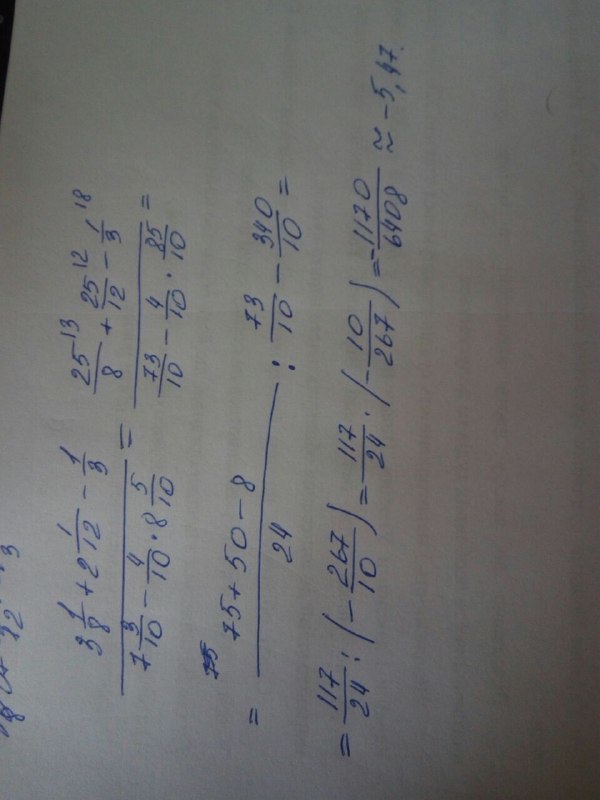 3 1/8 + 2 1/12 - 1/3 / 7 3/10 - 4/10 · 8 5/10 = 25^13/8 + 25^12/12 - 1^18/3 / 73/10 - 4/10 · 85/10 =
= 75 + 50 - 8 / 24 : 73/10 - 340/10 =
= 117/24 : (- 267/10) = 117/24 · (- 10/267) = -1170/6408 ≈ -5,47.